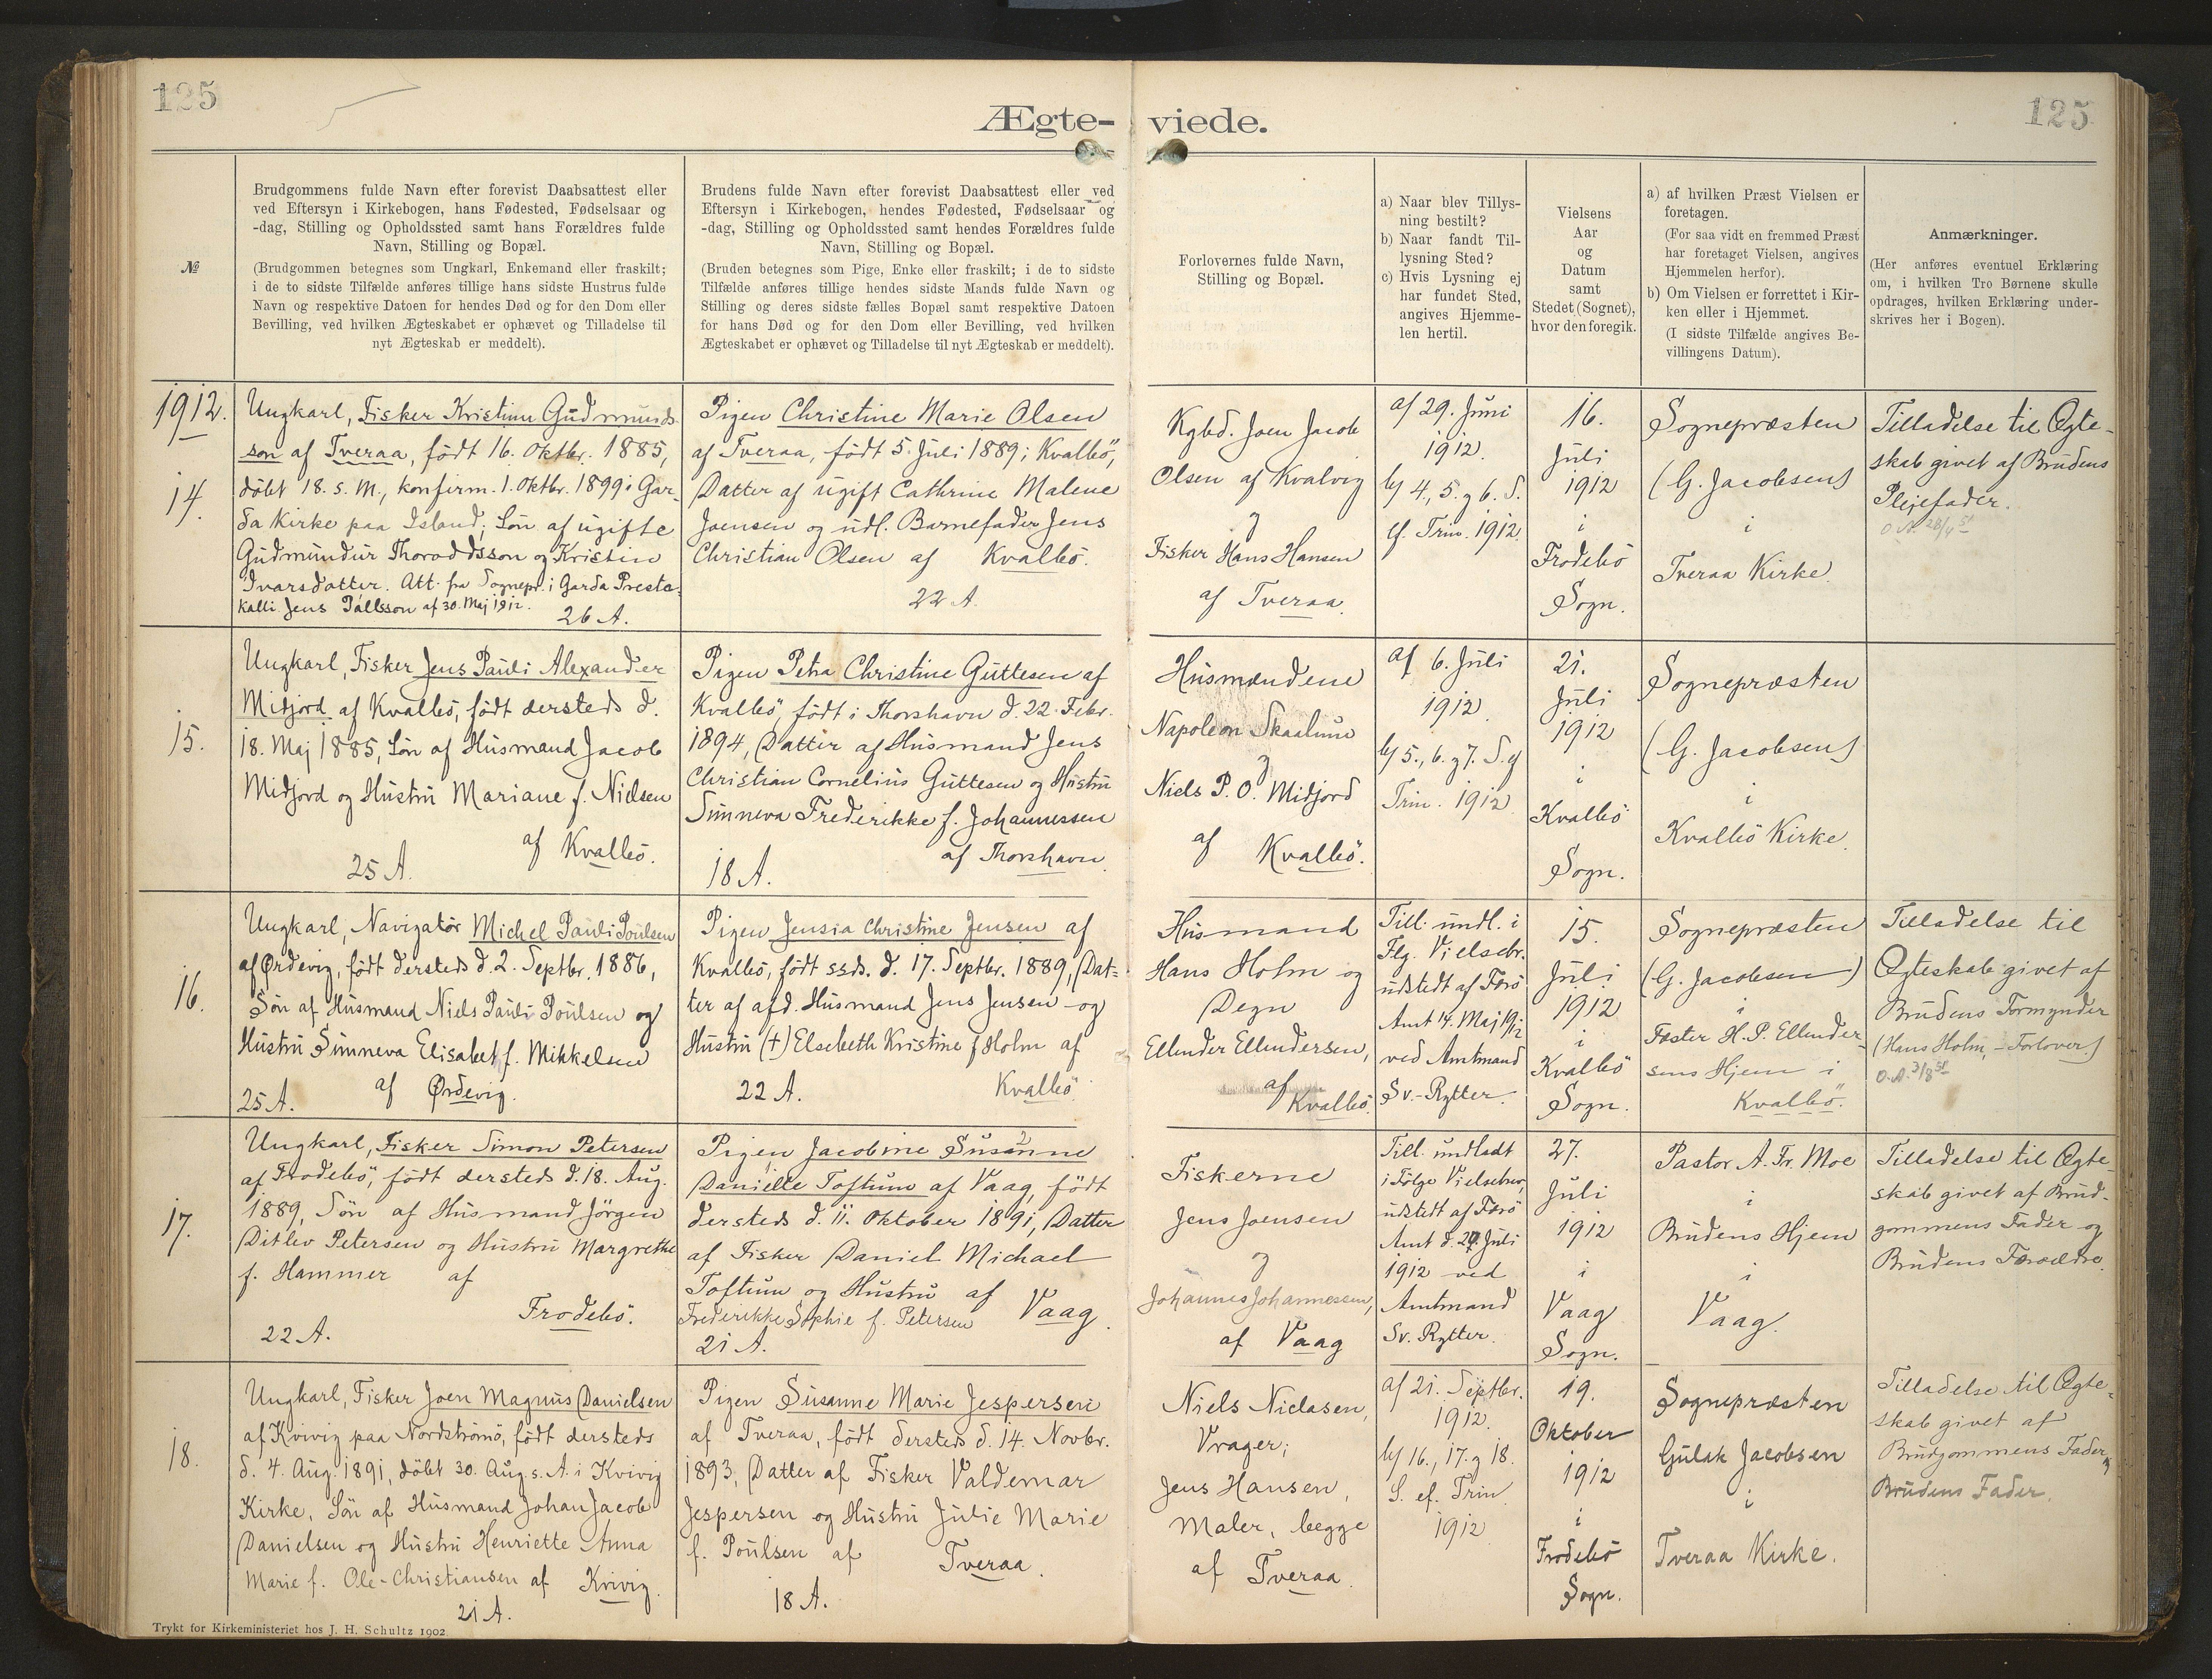 125
125
Ægte-
viede.
№
Brudgommens fulde Navn efter forevist Daabsattest eller
ved Eftersyn i Kirkebogen, hans Fødested, Fødselsaar og
-dag, Stilling og Opholdssted samt hans Forældres fulde
Navn, Stilling og Bopæl.
(Brudgommen betegnes som Ungkarl, Enkemand eller fraskilt;
i de to sidste Tilfælde anføres tillige hans sidste Hustrus fulde
Navn og respektive Datoen for hendes Død og for den Dom eller
Bevilling, ved hvilken Ægteskabet er ophævet og Tilladelse til
nyt Ægteskab er meddelt).
Brudens fulde Navn efter forevist Daabsattest eller ved
Eftersyn i Kirkebogen, hendes Fødested, Fødselsaar og
-dag, Stilling og Opholdssted samt hendes Forældres fulde
Navn, Stilling og Bopæl.
(Bruden betegnes som Pige, Enke eller fraskilt; i de to sidste
Tilfælde anføres tillige hendes sidste Mands fulde Navn og
Stilling og deres sidste fælles Bopæl samt respektive Datoen
for hans Død og for den Dom eller Bevilling, ved hvilken
Ægteskabet er ophævet og Tilladelse til nyt Ægteskab er meddelt).
Forlovernes fulde Navn,
Stilling og Bopæl.
a) Naar blev Tillys-
ning bestilt?
b) Naar fandt Til-
lysning Sted?
c) Hvis Lysning ej
har fundet Sted,
angives Hjemme-
len hertil.
Vielsens
Aar
og
Datum
samt
Stedet (Sognet),
hvor den foregik.
a) af hvilken Præst Vielsen er
foretagen.
(For saa vidt en fremmed Præst
har foretaget Vielsen, angives
Hjemmelen herfor).
b) Om Vielsen er forrettet i Kir-
ken eller i Hjemmet.
(I sidste Tilfælde angives Be-
villingens Datum).
Anmærkninger.
(Her anføres eventuel Erklæring
om, i hvilken Tro Børnene skulle
opdrages, hvilken Erklæring under-
skrives her i Bogen).
1912.
14.
Ungkarl, Fisker Kristinn Gudmunds-
son af Tveraa, født 16. Oktbr. 1885,
döbt 18. s. M., konfirm. 1. Oktbr. 1899 i Gar-
da Kirke paa Island; Søn af ugifte
Gudmundur Thoroddsson og Kristin
Ivarsdatter. Att. fra Sognepr. i Garda Presta-
kalli Jens Pállsson af 30. Maj 1912.
26 A.
Pigen Christine Marie Olsen
af Tveraa, født 5. Juli 1889 i Kvalbö,
Datter af ugift Cathrine Malene
Joensen og udl. Barnefader Jens
Christian Olsen af Kvalbö.
22 A.
Kgbd. Joen Jacob
Olsen af Kvalvig
og
Fisker Hans Hansen
af Tveraa.
a) 29. Juni
1912.
b) 4., 5. og 6. S.
ef. Trin. 1912.
16.
Juli
1912
i
Frodebö
Sogn.
Sognepræsten
(G. Jacobsen)
i
Tveraa Kirke.
Tilladelse til Ægte-
skab givet af Brudens
Plejefader.
15.
Ungkarl, Fisker Jens Pauli Alexander
Midjord af Kvalbö, født dersteds d.
18. Maj 1885, Søn af Husmand Jacob
Midjord og Hustru Mariane f. Nielsen
af Kvalbö.
25 A.
Pigen Petra Christine Guttesen af
Kvalbö, født i Thorshavn d. 22. Febr.
1894, Datter af Husmand Jens
Christian Cornelius Guttesen og Hustru
Sunneva Frederikke f. Johannessen
af Thorshavn.
18 A.
Husmændene
Napoleon Skaalum
og
Niels P. O. Midjord
af Kvalbö.
a) 6. Juli
1912.
b) 5., 6. og 7. S. ef
Trin. 1912
21.
Juli
1912
i
Kvalbö
Sogn.
Sognepræsten
(G. Jacobsen)
i
Kvalbö Kirke.
16.
Ungkarl, Navigatør Michel Pauli Poulsen
af Ørdevig, født dersteds d. 2. Septbr. 1886,
Søn af Husmand Niels Pauli Poulsen og
Hustru Sunneva Elisabet f. Mikkelsen
af Ørdevig.
25 A.
Pigen Jensia Christine Jensen af
Kvalbö, født ssds. d. 17. Septbr. 1889, Dat-
ter af afd. Husmand Jens Jensen og
Hustru (†) Elsebeth Kristine f Holm af
Kvalbö
22 A.
Husmand
Hans Holm og
Degn
Ellender Ellendersen,
af
Kvalbö.
Till. undl. i
Flg. Vielsebr.
udstedt af Færö
Amt 14. Maj 1912
ved Amtmand
Sv. Rytter.
15.
Juli
1912
i
Kvalbö
Sogn.
Sognepræsten
(G. Jacobsen)
i
Faster H. P. Ellender-
sens Hjem i
Kvalbö.
Tilladelse til
Ægteskab givet af
Brudens Formynder
(Hans Holm, - Forlover.)
17.
Ungkarl, Fisker Simon Petersen
af Frodebö, født dersteds d. 18. Aug.
1889, Søn af Husmand Jörgen
Ditlev Petersen og Hustru Margrethe
f. Hammer af
Frodebö.
22 A.
Pigen Jacobine Susanne
Danielle Toftum af Vaag, født
dersteds d. 11. Oktober 1891, Datter
af Fisker Daniel Michael
Toftum og Hustru af
Frederikke Sophie f. Petersen Vaag.
21 A.
Fiskerne
Jens Joensen
og
Johannes Johannessen,
af Vaag
Till. undladt
i Følge Vielsebrev,
udstedt af Færö
Amt d. Juli
1912 ved
Amtmand
Sv. Rytter.
27.
Juli
1912
i
Vaag
Sogn.
Pastor A. Fr. Moe
i
Brudens Hjem
i
Vaag.
Tilladelse til Ægte-
skab givet af Brud-
gommens Fader og
Brudens Forældre.
18.
Ungkarl, Fisker Joen Magnus Danielsen
af Kvivig paa Nordströmö, født dersteds
d. 4. Aug. 1891, döbt 30. Aug. s. A. i Kvivig
Kirke, Søn af Husmand Johan Jacob
Danielsen og Hustru Henriette Anna
Marie f. Ole-Christiansen af Kvivig.
21 A.
Pigen Susanne Marie Jespersen
af Tveraa, født dersteds d. 14. Novbr.
1893, Datter af Fisker Valdemar
Jespersen og Hustru Julie Marie
f. Poulsen af Tveraa.
18 A.
Niels Niclasen,
Vrager;
Jens Hansen,
Maler, begge
af Tveraa.
a) 21. Septbr.
1912.
b) 16., 17. og 18.
S. ef. Trin.
1912
19.
Oktober
1912
i
Frodebö
Sogn.
Sognepræsten
Gulak Jacobsen
i
Tveraa Kirke.
Tilladelse til Ægte-
skab givet af
Brudgommens Fader og
Brudens Fader.
Trykt for Kirkeministeriet hos J. H. Schultz 1902